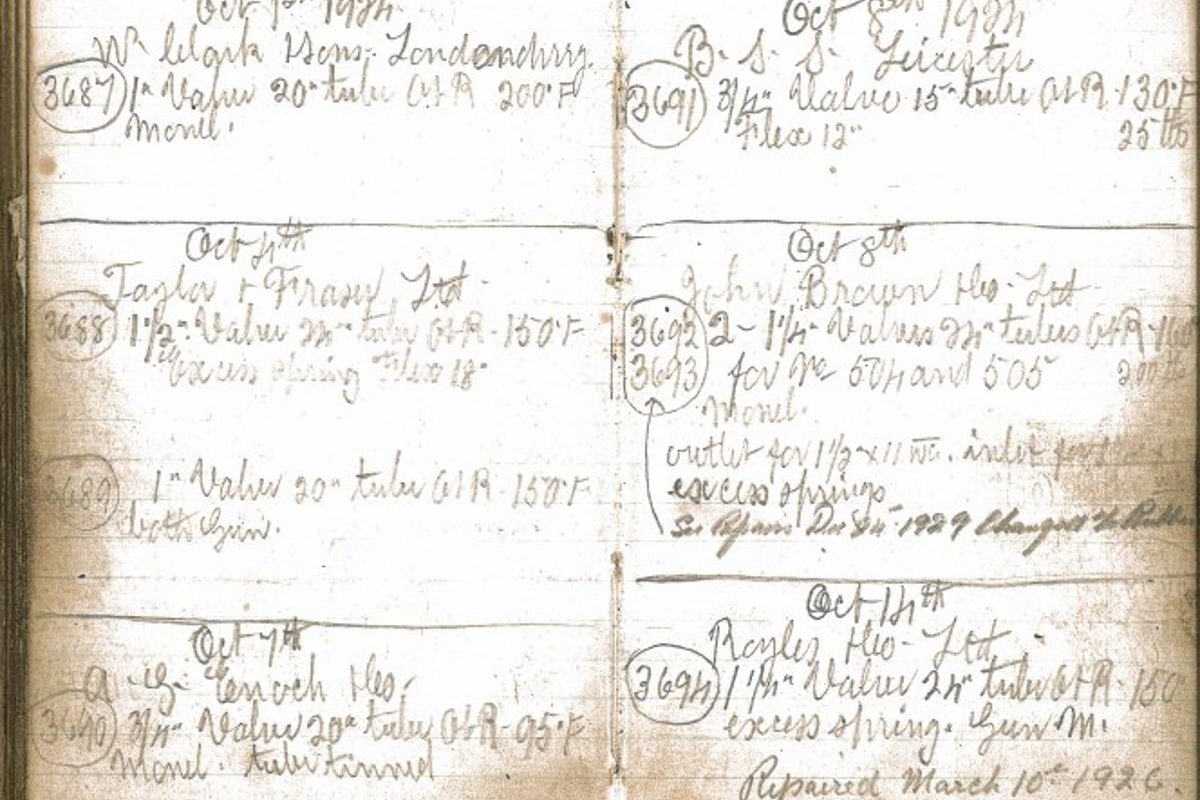 Oct 1st 1924
Wm Clark & Sons. Londonderry.
3687 1" Valve 20" tube O & R 200°F
Monel.
Oct 4th
Taylor & Fraser Ltd
3688 1 1/2" Valve 24" tube O & R - 150°F
Excess spring Flex 18"
3689 1" Valve 20" tube O & R - 150°F
both Gun.
Oct 7th
A. G. Enoch & Co.
3690 3/4" Valve 20" tube O & R - 95°F
Monel. tube tinned
Oct 8th 1924
B. S. S. Leicester
3691 3/4" Valve 15" tube O & R - 130°F
Flex 12" 25 lbs
Oct 8th
John Brown & Co - Ltd
3692 2 - 1 1/4" Valves 24" tubes O & R - 160
3693 for No 504 and 505 200
Monel.
outlet for 1 1/2 x 11 inlet for
excess springs
See Repairs Dec 24 - 1929 Changed to
Oct 14th
Royles & Co - Ltd
3694 1 1/4" Valve 24" tube O & R - 150°
excess spring. Gun M.
Repaired March 10th 1926.